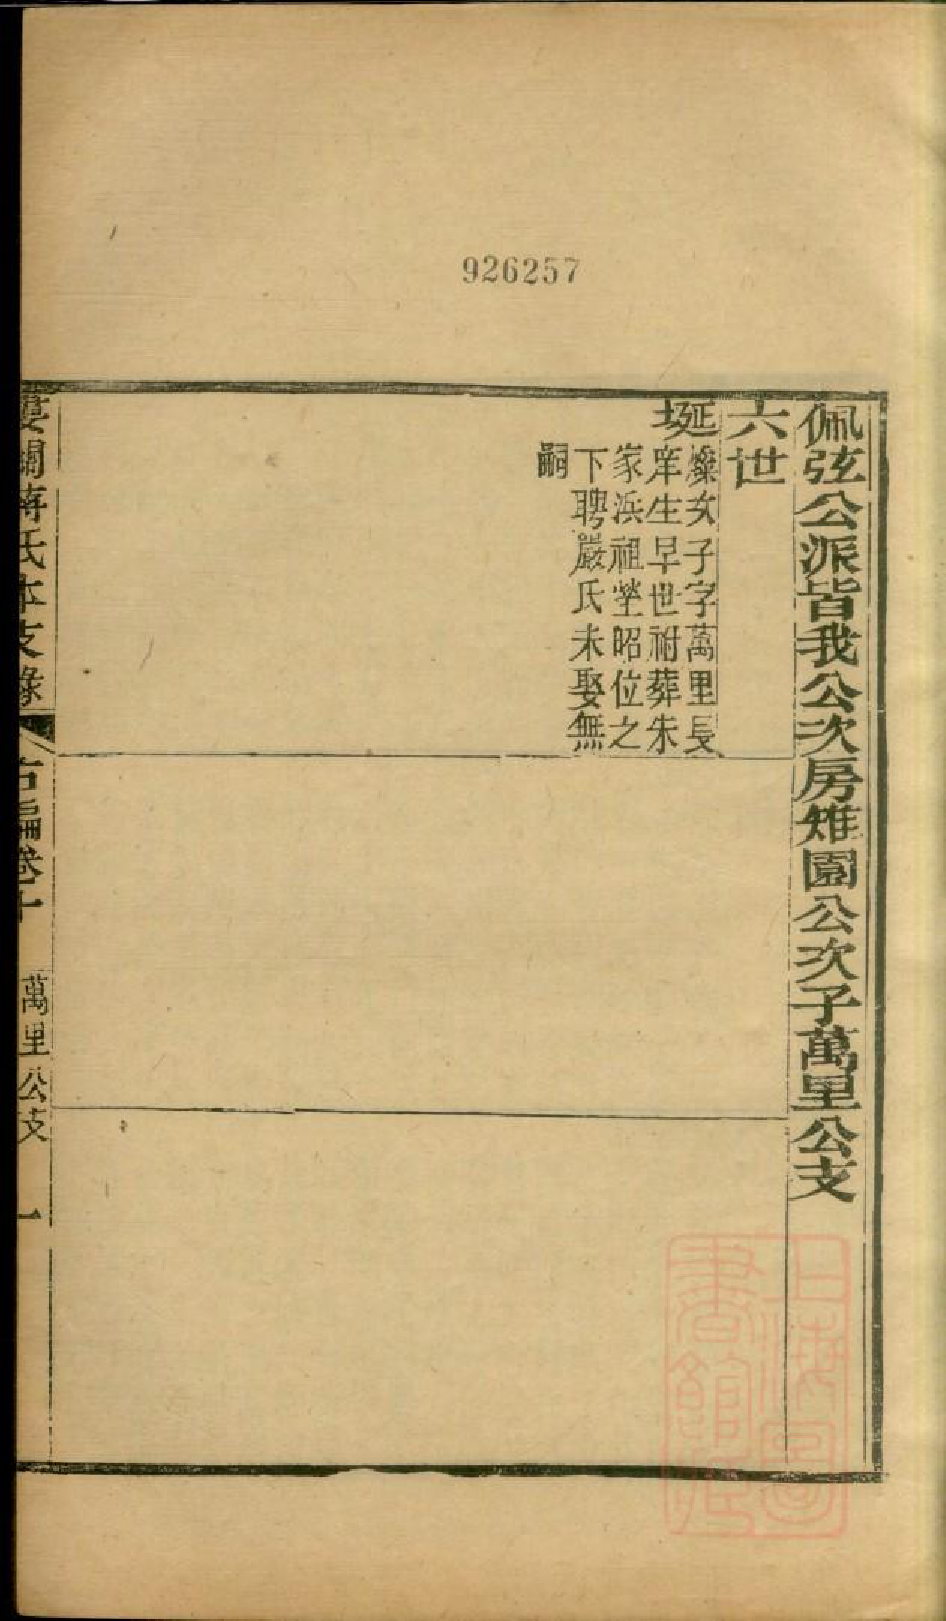 926257
佩弦公派皆我公次房雉園公次子萬里公支
六世
延㘭
燦次子字萬里長
庠生早世祔葬朱
家浜祖塋昭位之
下聘嚴氏未娶無
嗣
婁關蔣氏本支錄
右編卷十
萬里公支
一
上海圖
書館藏